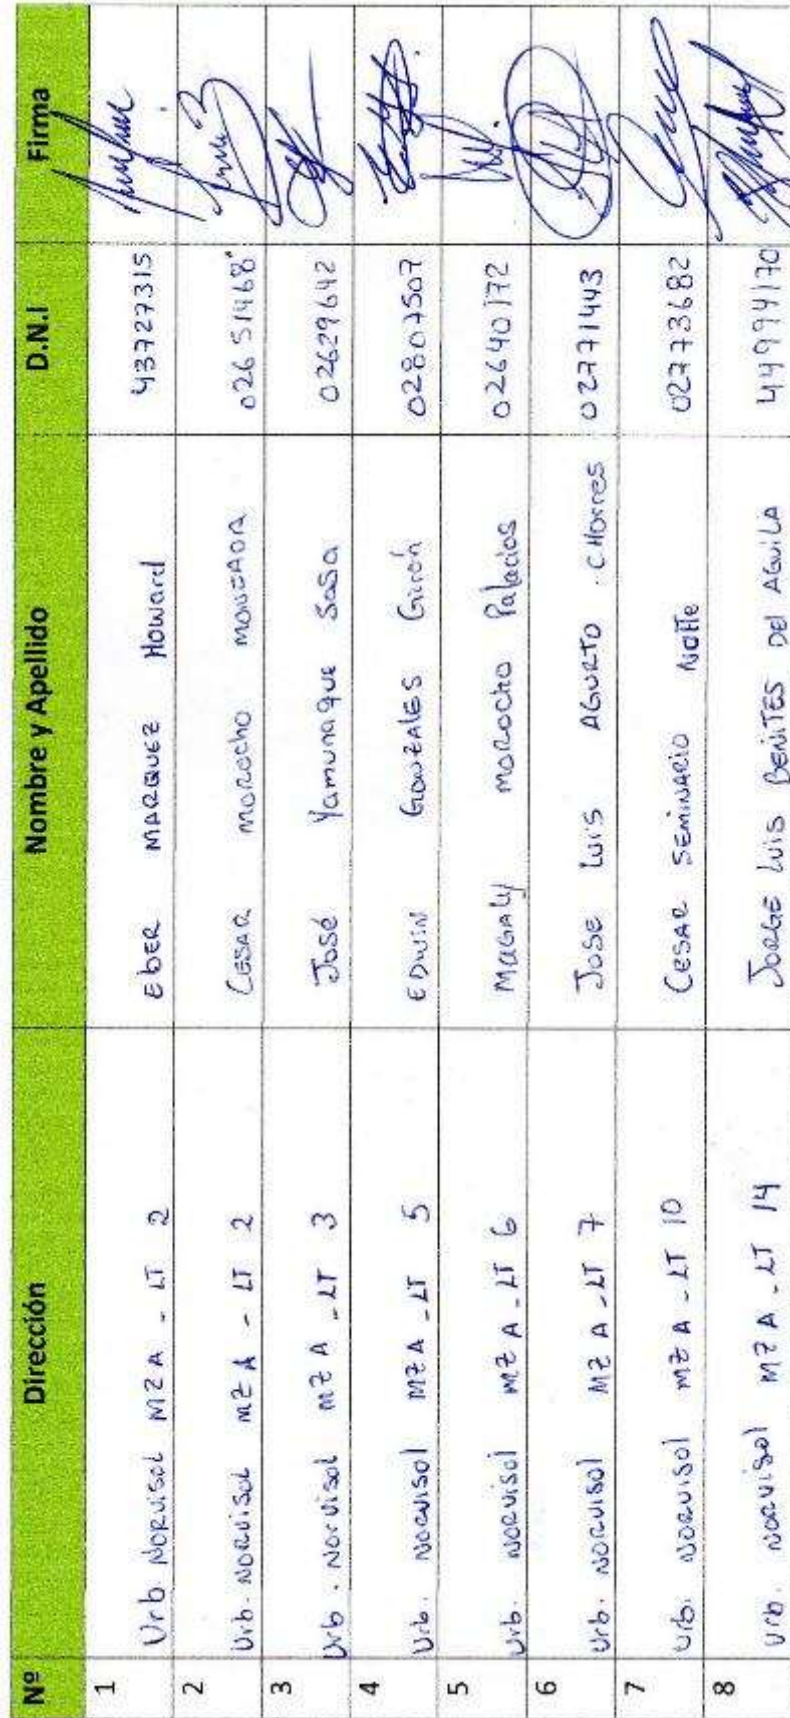 Nº Dirección Nombre y Apellido D.N.I Firma
1 Urb NORVISOL MZ A - LT 2 EbER MARQUEZ Howard 43727315
2 Urb. NORVISOL MZ A - LT 2 CESAR MOROCHO 02651468
3 Urb. NORVISOL MZ A - LT 3 José Yamunaque Sosa 02629642
4 Urb. NORVISOL MZ A - LT 5 EDWIN GONZALES Girón 02807507
5 Urb. NORVISOL MZ A - LT 6 MAGALY MOROCHO Palacios 02640172
6 Urb. NORVISOL MZ A - LT 7 JOSE LUIS AGURTO CHORRES 02771443
7 Urb. NORVISOL MZ A - LT 10 CESAR SEMINARIO 02773682
8 Urb. NORVISOL MZ A - LT 14 JORGE LUIS BENITES DEL AGUILA 44994170